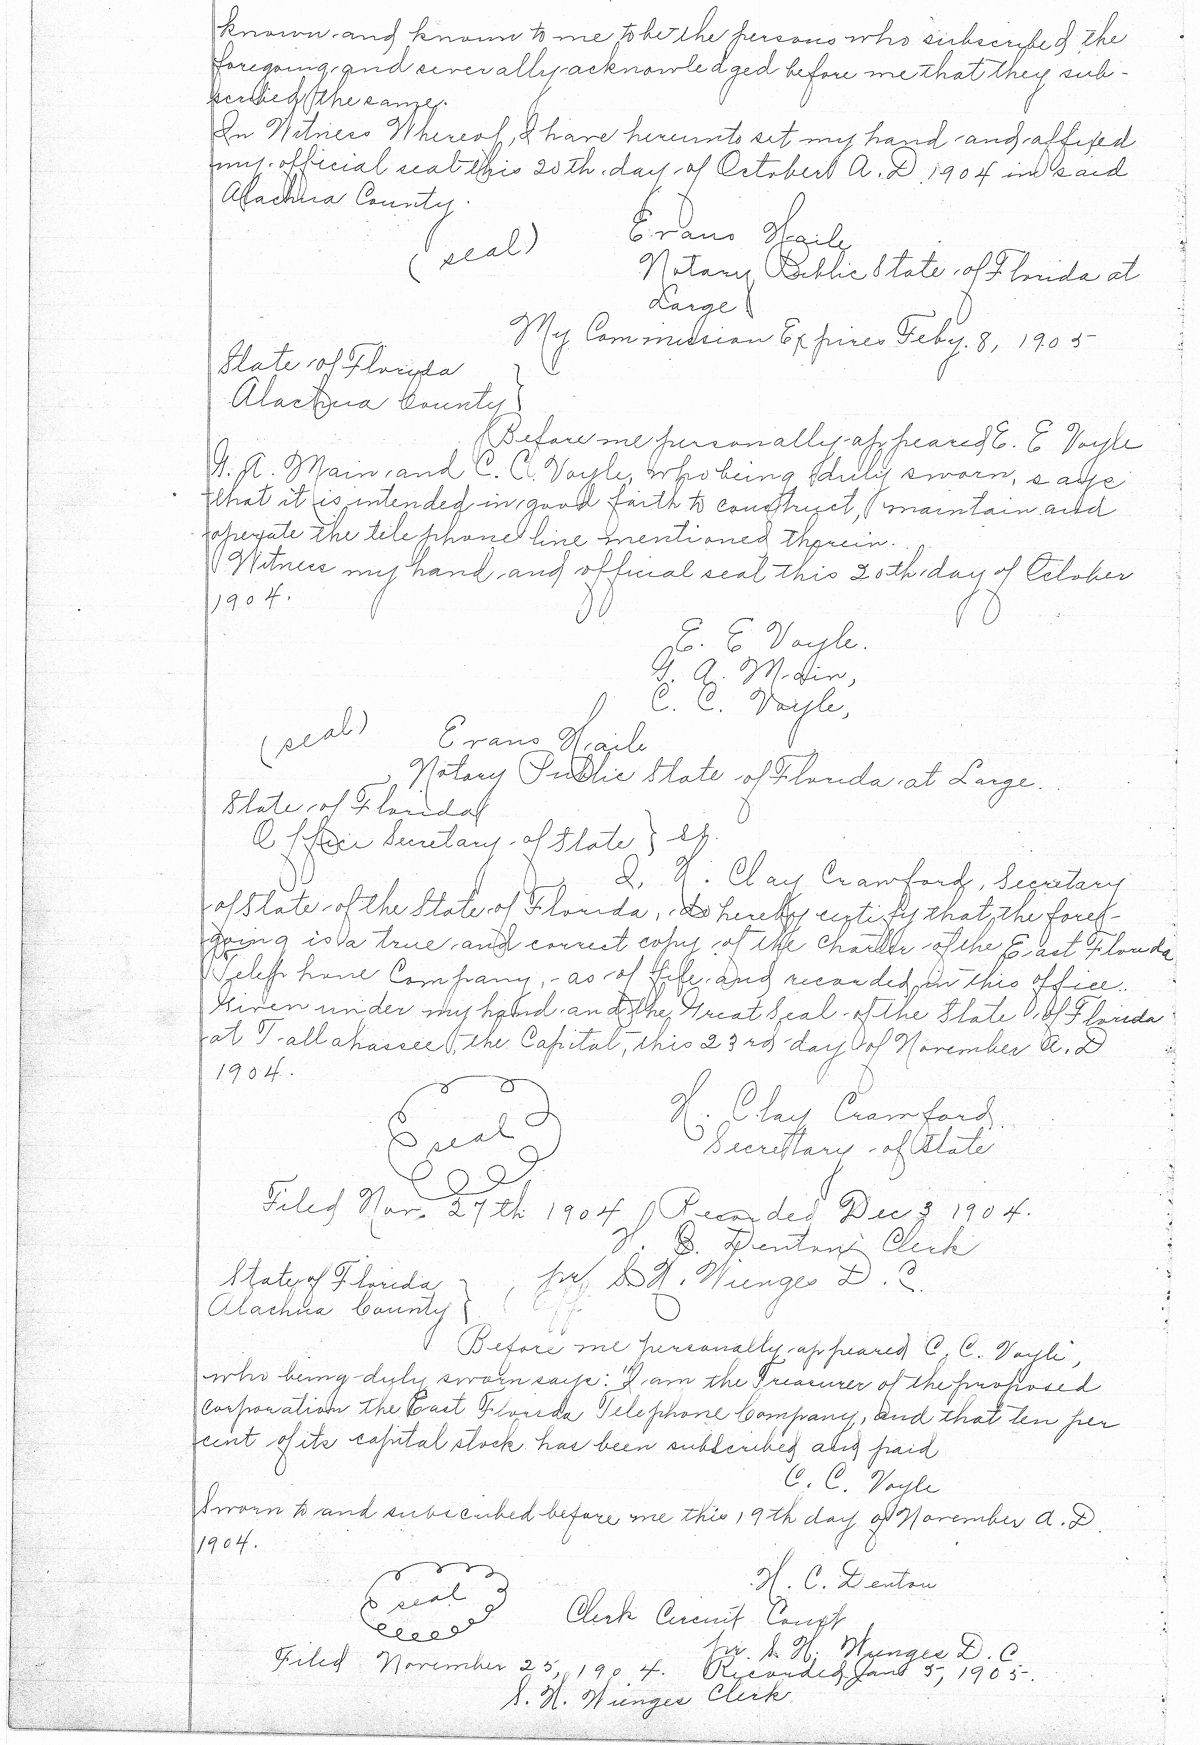 known and known to me to be the persons who subscribed the
foregoing and severally acknowledged before me that they sub-
scribed the same.
In Witness Whereof, I have hereunto set my hand and affixed
my official seal this 20th day of October A.D. 1904 in said
Alachua County.
(seal) Evans Haile
Notary Public State of Florida at
Large
My Commission Expires Feby. 8, 1905
State of Florida }
Alachua County }
Before me personally appeared E. E Voyle
G. A. Main, and C. C. Voyle, who being duly sworn, says
that it is intended in good faith to construct, maintain and
operate the telephone line mentioned therein.
Witness my hand and official seal this 20th day of October
1904.
E. E Voyle.
G. A. Main,
C. C. Voyle,
(seal) Evans Haile
Notary Public State of Florida at Large.
State of Florida
Office Secretary of State } ss.
I, H. Clay Crawford, Secretary
of State of the State of Florida, do hereby certify that the fore-
going is a true and correct copy of the Charter of the East Florida
Telephone Company, as of file and recorded in this office.
Given under my hand and the Great Seal of the State of Florida
at Tallahassee, the Capital, this 23rd day of November A.D
1904.
seal H. Clay Crawford
Secretary of State
Filed Nov. 27th 1904 Recorded Dec 3 1904.
Denton Clerk
State of Florida } pr S. H. Wienges D. C.
Alachua County }
Before me personally appeared C. C. Voyle,
who being duly sworn says: "I am the Treasurer of the proposed
corporation the East Florida Telephone Company, and that ten per
cent of its capital stock has been subscribed and paid
C. C. Voyle
Sworn to and subscribed before me this 19th day of November A.D.
1904.
seal H. C. Denton
Clerk Circuit Court
pr. S. H. Wienges D. C.
Filed November 25, 1904. Recorded Jan 5, 1905.
S. H. Wienges Clerk